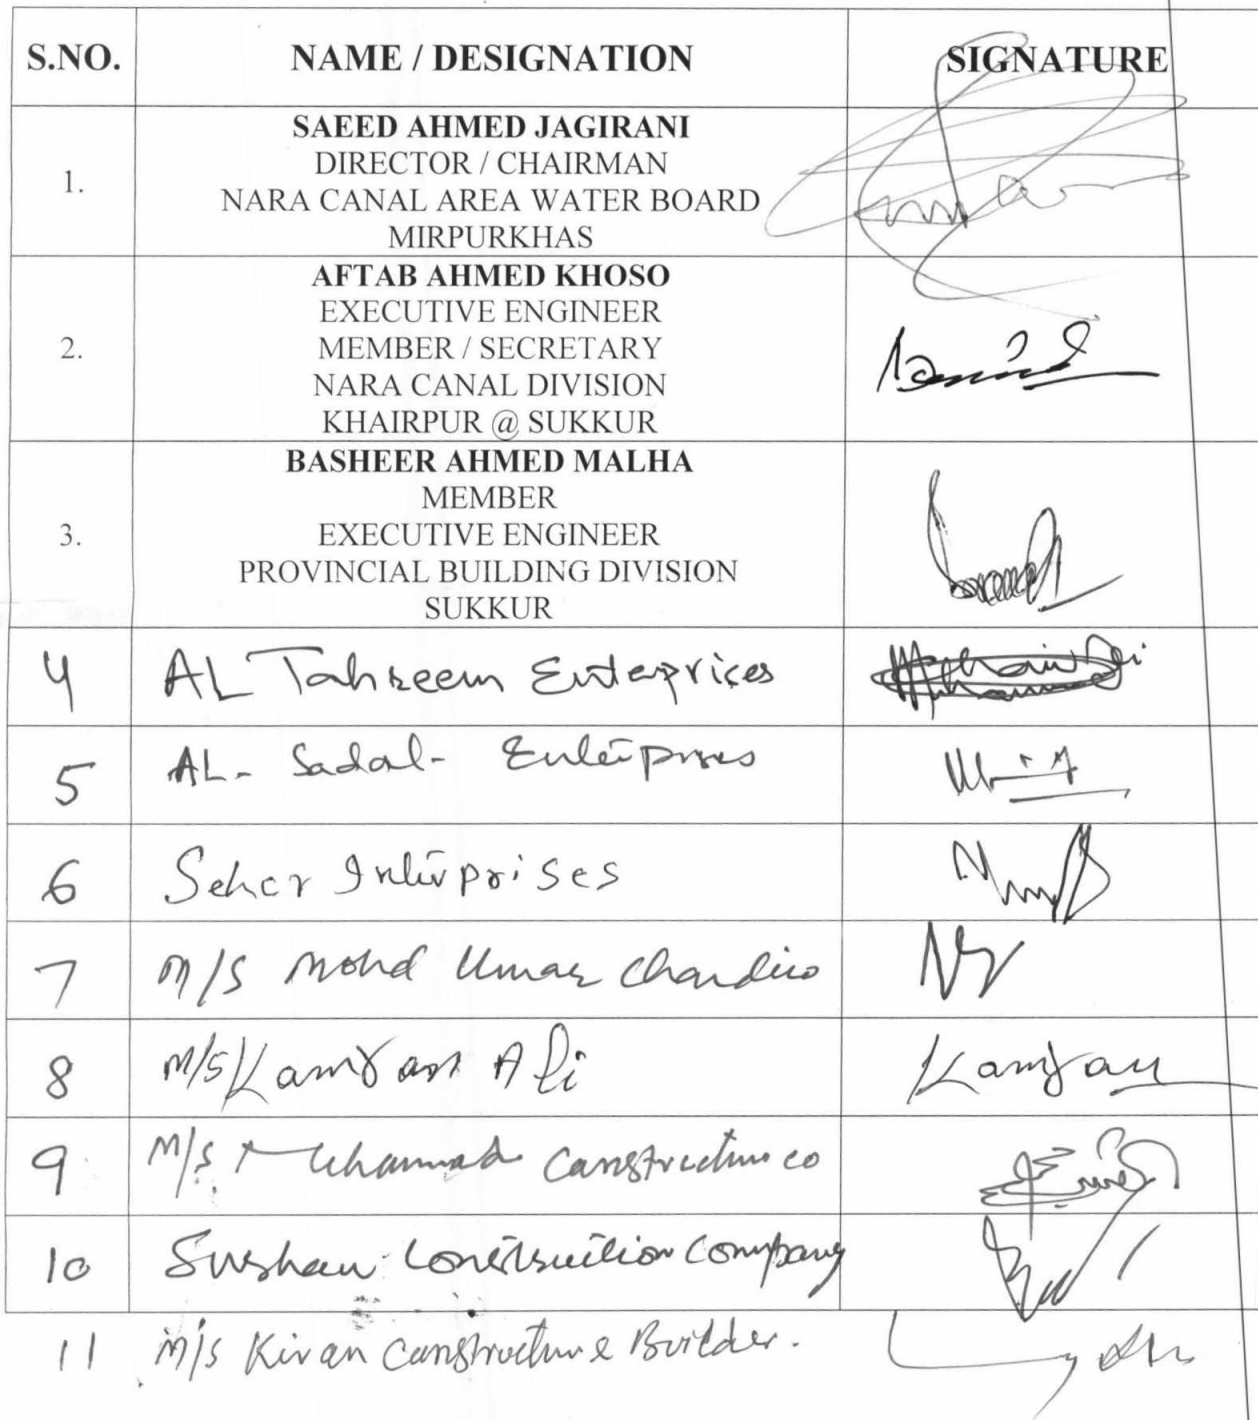 S.NO. NAME / DESIGNATION SIGNATURE
SAEED AHMED JAGIRANI
DIRECTOR / CHAIRMAN
1.
NARA CANAL AREA WATER BOARD
MIRPURKHAS
AFTAB AHMED KHOSO
EXECUTIVE ENGINEER
2. MEMBER / SECRETARY
NARA CANAL DIVISION
KHAIRPUR @ SUKKUR
BASHEER AHMED MALHA
MEMBER
3. EXECUTIVE ENGINEER
PROVINCIAL BUILDING DIVISION
SUKKUR
4 AL Tahreem Enterprices
5 AL- Enterprises
6 Seher Interprises
7 M/S Mohd Umar
8 M/S Kamran Ali Kamran
9 M/S Muhammad Construction co
10 Construction Company
11 M/S Kiran Construction & Builder.